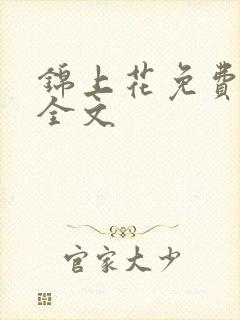 錦上花免費
全文
官家大少